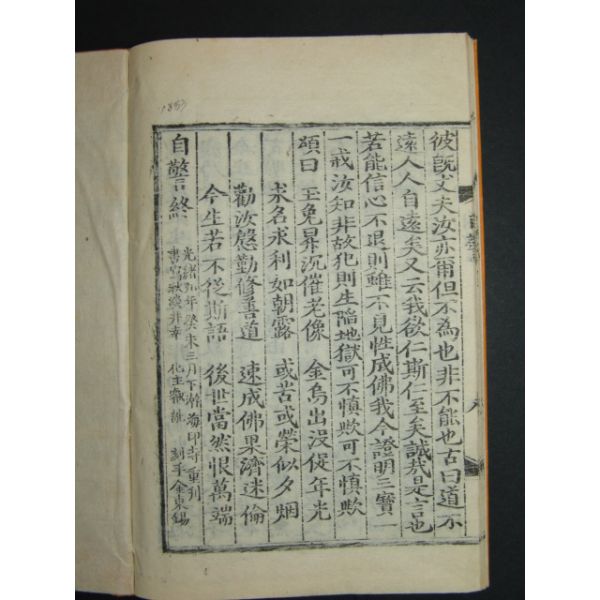 彼旣丈夫汝亦爾但不為也非不能也古曰道不
遠人人自遠矣又云我欲仁斯仁至矣誠哉是言也
若能信心不退則誰不見性成佛我今證明三寶一
一戒汝知非故犯則生陷地獄可不慎歟可不慎歟
頌曰 玉兔昇沉催老像 金烏出沒促年光
求名求利如朝露 或苦或榮似夕烟
勸汝慇勤修善道 速成佛果濟迷倫
今生若不從斯語 後世當然恨萬端
自警終
光緒九年癸未三月下澣海印寺重刊
化主 刻手金東錫
1883